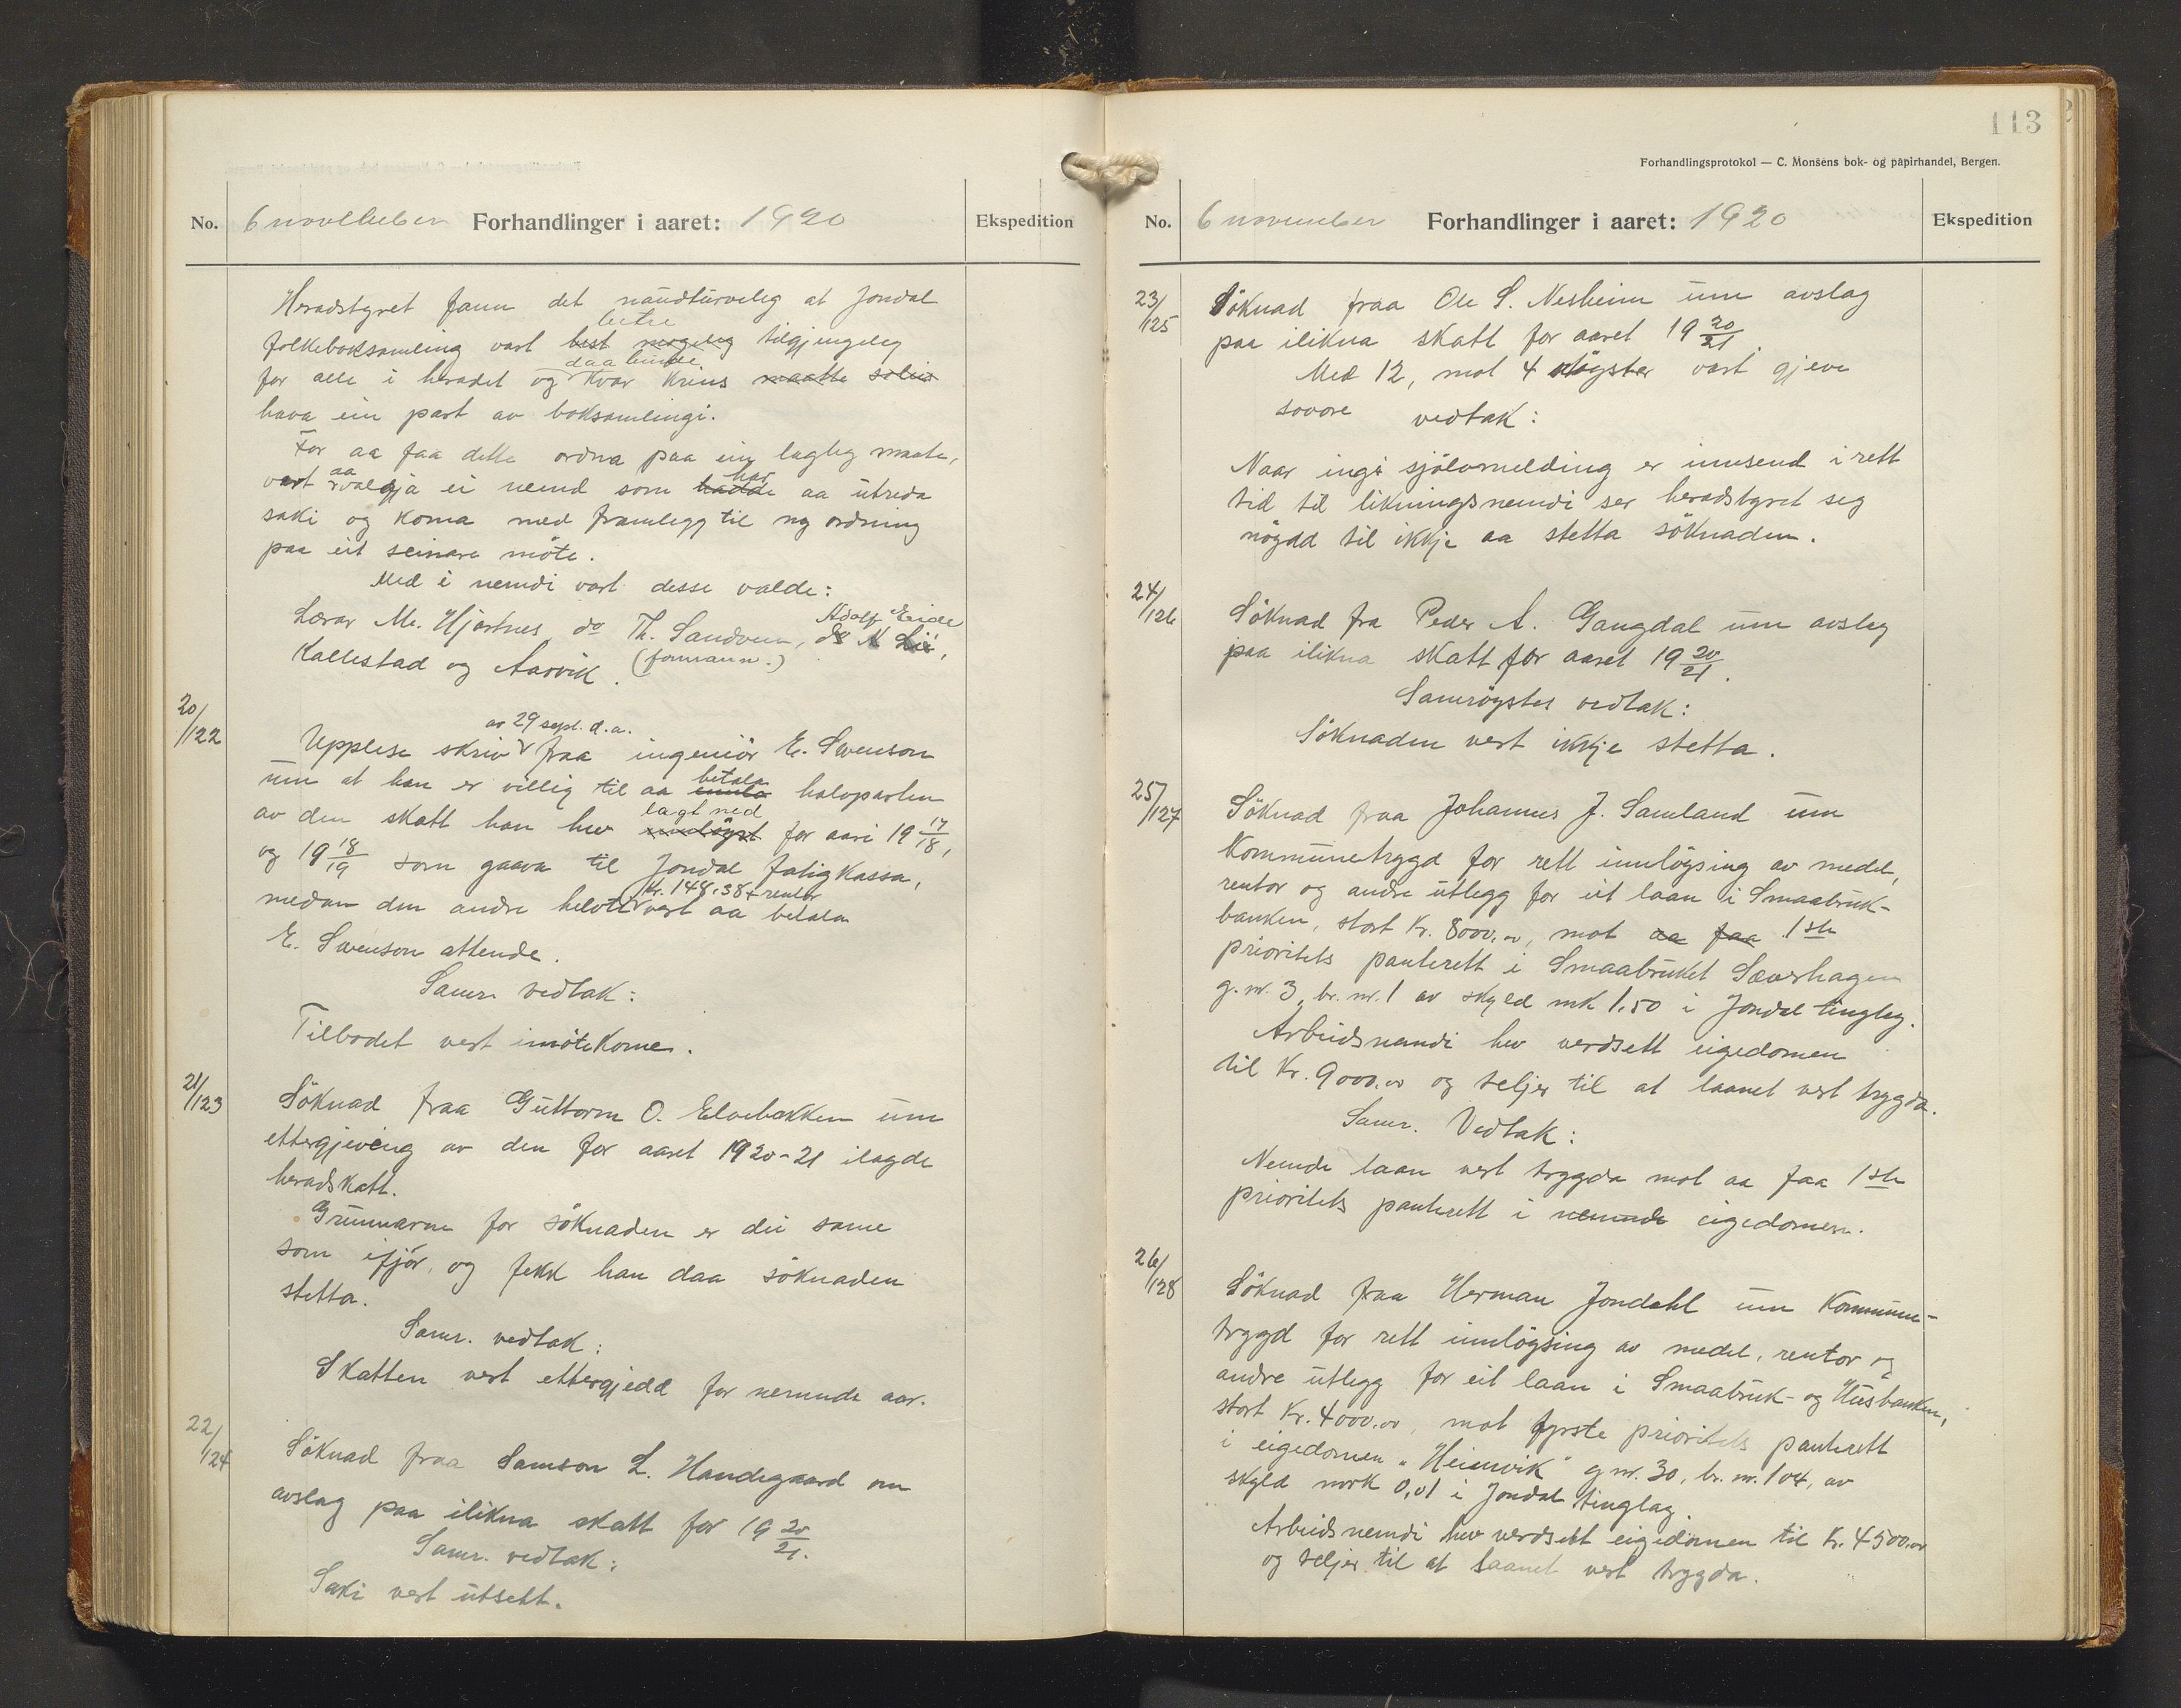 No. 6 november Forhandlinger i aaret: 1920 Ekspedition
Heradstyret fann det naudturveleg at Jondal
folkeboksamling vart best mogeleg betre tilgjengeleg
for alle i heradet og daa burde kvar krins maatte soleis
hava ein part av boksamlingi.
For aa faa dette ordna paa ein lagleg maate,
vart aa velgja ei nemnd som hadde har aa utreda
saki og koma med framlegg til ny ordning
paa eit seinare möte.
Med i nemdi vart desse valde:
Lærar M. Hjartnes do Th. Sandven, Adolf Eide
Kallestad og Aarvik. (formann.)
20/122
Upplese skriv av 29 sept. d.a. fraa ingeniör E. Swenson
um at han er villig til aa betala halvparten
av den skatt han hev lagt ned for aari 19 17/18,
og 19 18/19 som gaava til Jondal fatigkassa,
medan den andre helvti Kr. 148,38 + rentor vert aa betala
E. Swenson attende.
Samr. vedtak:
Tilbodet vert imötekome.
21/123
Söknad fraa Guttorm O. Elvebakken um
ettergjeving av den for aaret 1920-21 ilagde
heradskatt.
Grunnarne for söknaden er dei same
som ifjör, og fekk han daa söknaden
stetta.
Samr. vedtak:
Skatten vert ettergjedd for nemnde aar.
22/124
Söknad fraa Samson L. Handegaard om
avslag paa ilikna skatt for 19 20/21.
Samr. vedtak:
Saki vert utsett.
113
Forhandlingsprotokol — C. Monsens bok- og papirhandel, Bergen.
No. 6 november Forhandlinger i aaret: 1920 Ekspedition
23/125
Söknad fraa Ole S. Nesheim um avslag
paa ilikna skatt for aaret 19 20/21.
Med 12, mot 4 röyster vart gjeve
sovore vedtak:
Naar ingi sjölvmelding er innsend i rett
tid til likningsnemdi ser heradstyret seg
nögdd til ikkje aa stetta söknaden.
24/126
Söknad fra Peder A. Gangdal um avslag
paa ilikna skatt for aaret 19 20/21.
Samröystes vedtak:
Söknaden vert ikkje stetta.
25/127
Söknad fraa Johannes J. Samland um
Kommunetrygd for rett innlöysing av medel,
rentor og andre utlegg for eit laan i Smaabruk-
banken, stort Kr. 8000.00, mot aa faa 1ste
prioritets panterett i Smaabruket Saverhagen
g.nr. 3, br. nr. 1 av skyld mk 1.50 i Jondal tinglag.
Arbeidsnemdi hev verdsett eigedomen
til Kr. 9000.00 og teljer til at laanet vert trygda.
Samr. Vedtak:
Nemde laan vert trygda mot aa faa 1ste
prioritets panterett i nemnde eigedomen.
26/128
Söknad fraa Herman Jondahl um Kommune-
trygd for rett innlöysing av medel, rentor og
andre utlegg for eit laan i Smaabruk- og Husbanken,
stort Kr. 4000.00, mot fyrste prioritets panterett
i eigedomen "Heimvik" g nr. 30, br. nr. 104, av
skyld mrk 0,01 i Jondal tinglag.
Arbeidsnemdi hev verdsett eigedomen til Kr. 4500.00
og teljer til at laanet vert trygda.